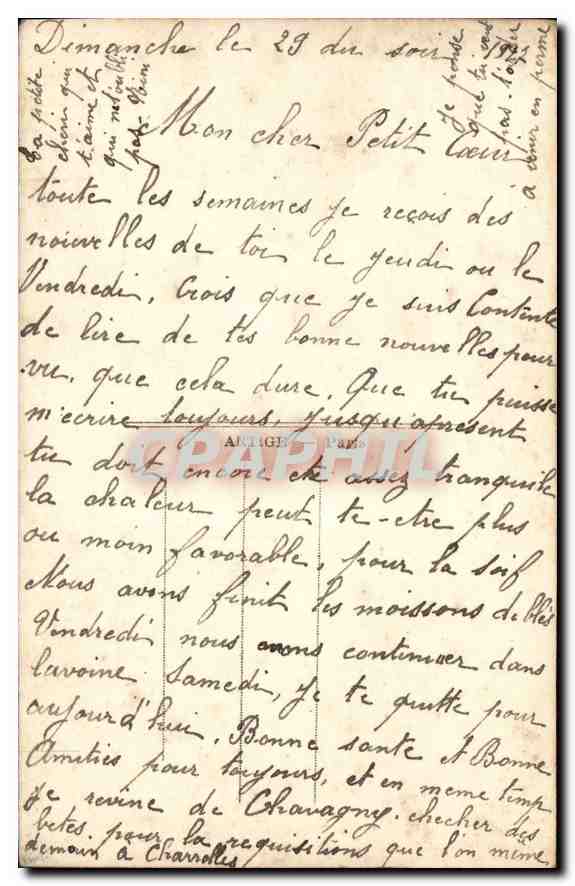 Dimanche le 29 du soir
Mon cher Petit Cœur
toute les semaines je reçois des
nouvelles de toi le jeudi ou le
Vendredi, Crois que je suis Contente
de lire de tes bonne nouvelles pour
vu, que cela dure, Que tu puisse
m'ecrire toujours, jusqu'apresent
ARTIGE Paris
CPAPHIL
tu doit encore ete assez tranquile
la chaleur peut te-etre plus
ou moin favorable, pour la soif
Nous avons finit les moissons de blés
Vendredi nous avons continuer dans
lavoine Samedi, Je te quitte pour
aujourd'hui. Bonne sante et Bonne
Amities pour toujours, et en meme temp
je revine de Chavagny. checher des
betes. pour la requisitions que l'on même
demain à Charrolles
La petite
cherie qui
t'aime et
qui ne t'oubli
pas
Je pense
que tu veut
pas
à venir en perme